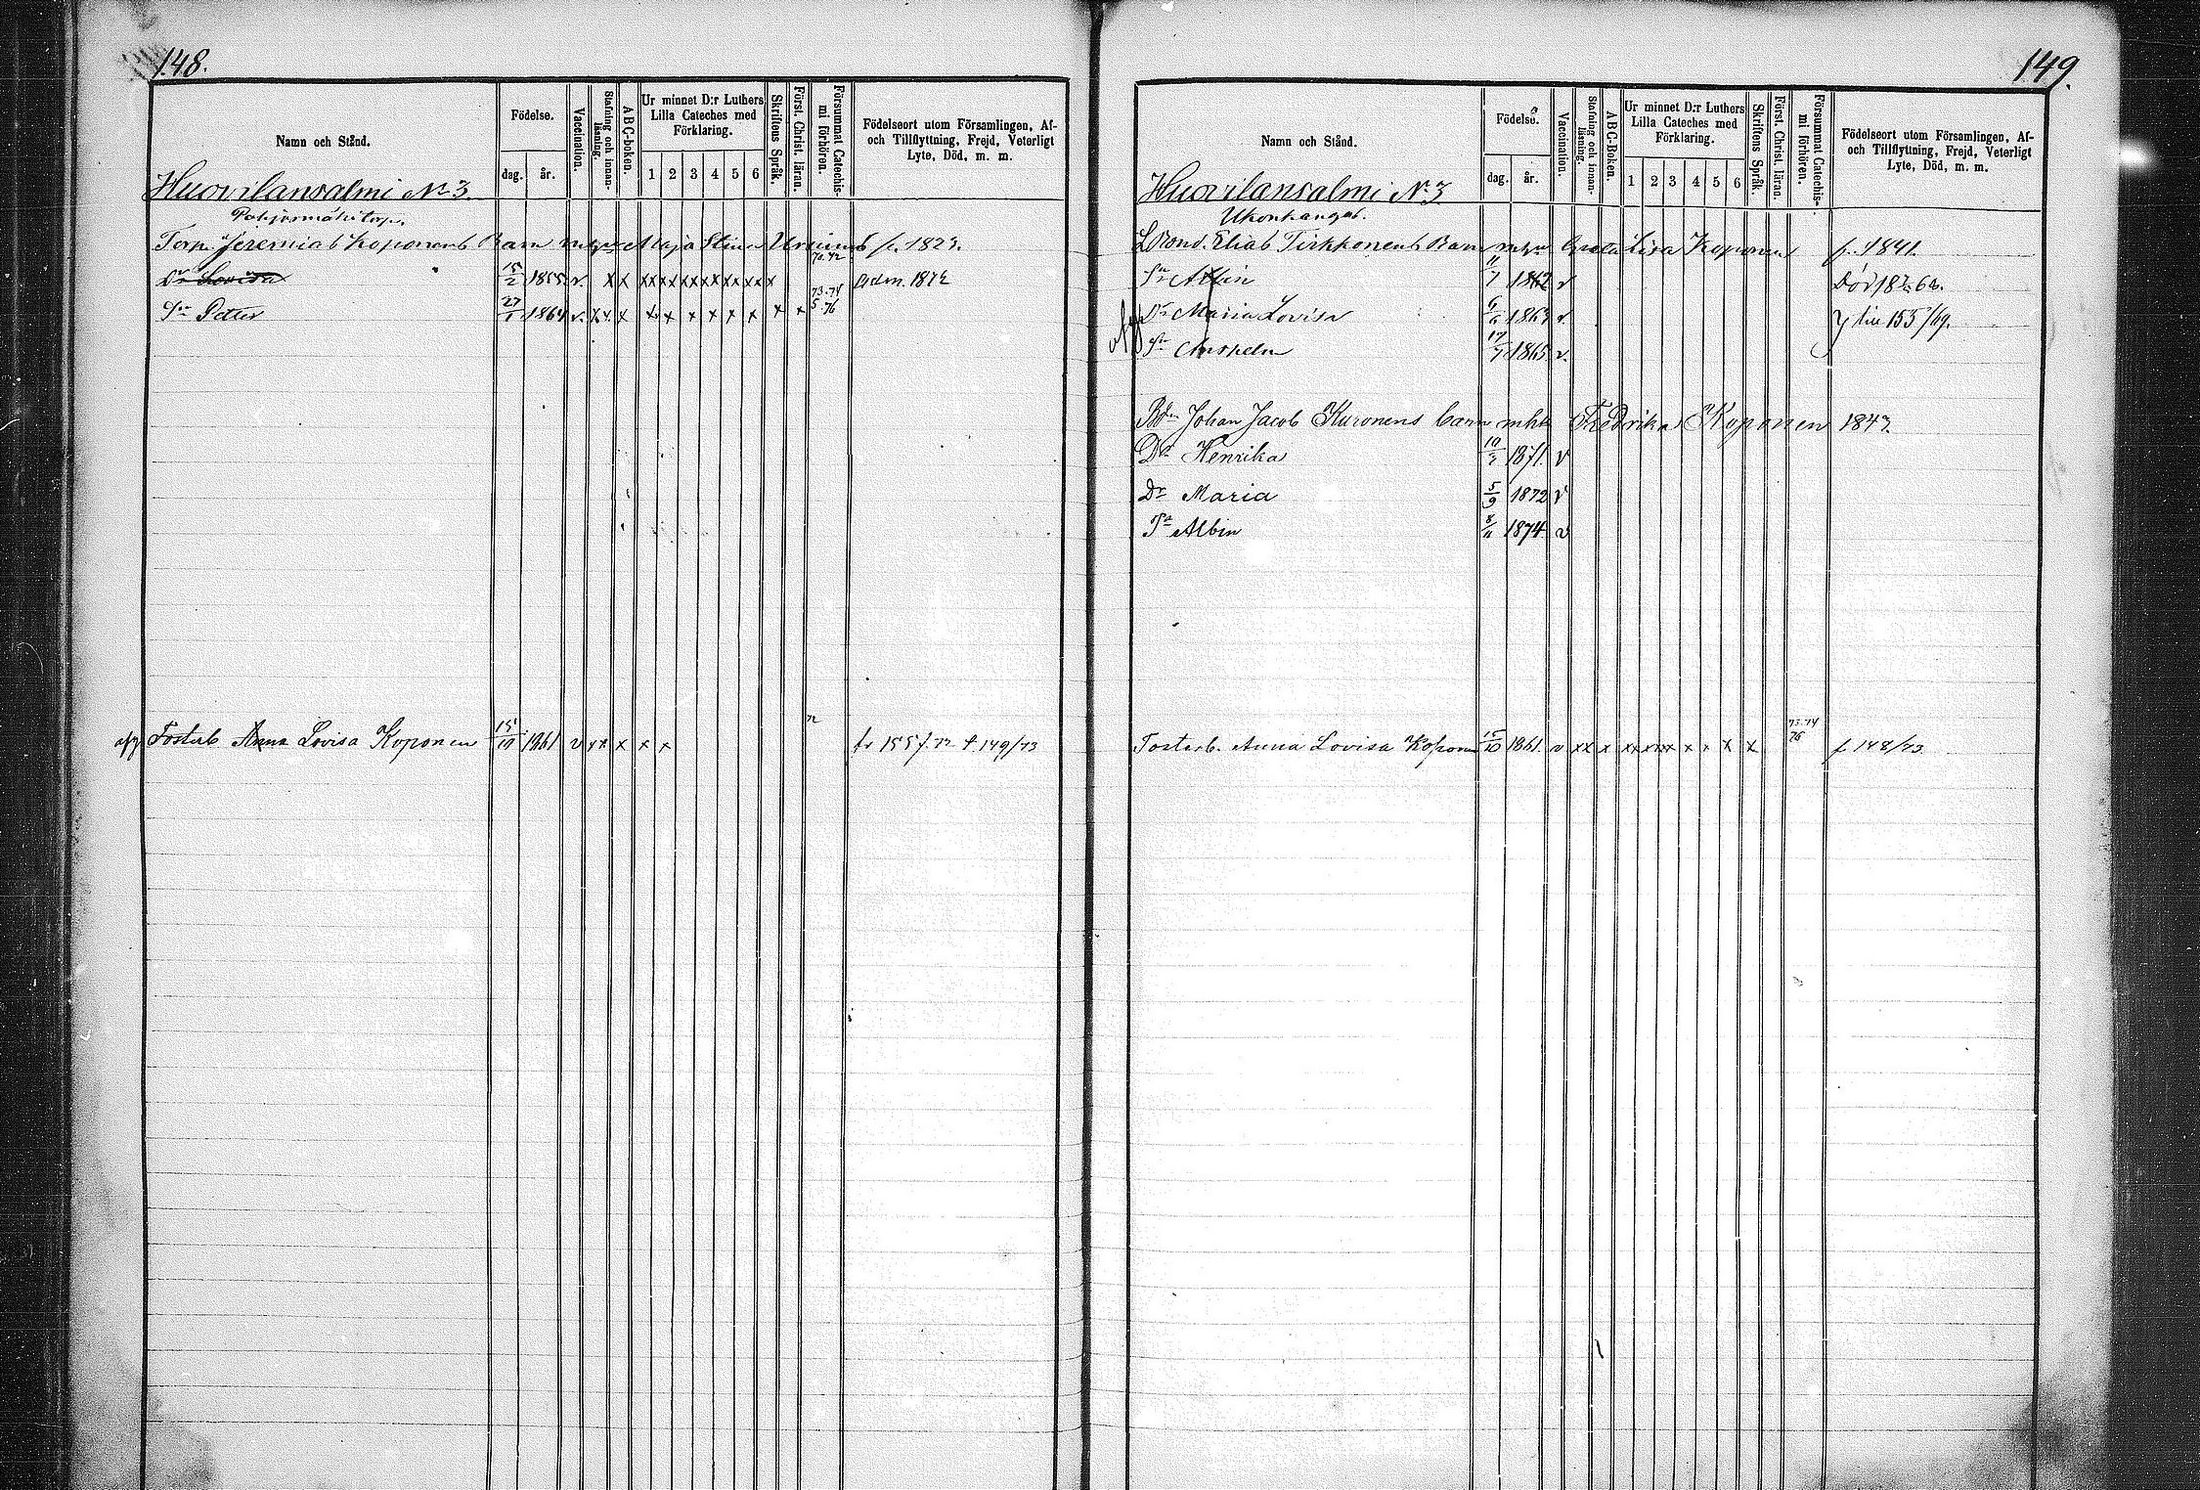 148.
Namn och Stånd.
Födelse.
dag.
år.
Vaccination.
Stafning och innanläsning.
ABC-boken.
Ur minnet D:r Luthers
Lilla Cateches med
Förklaring.
1 2 3 4 5 6
Skriftens Språk.
Först. Christ. läran.
Försummat Catechismi förhören.
Födelseort utom Församlingen, Af-
och Tillflyttning, Frejd, Veterligt
Lyte, Död, m. m.
Huovilansalmi No 3.
Torp. Jeremias Koponens Barn Maja Stina Ursinus f. 1823.
70.72
Dr Lovisa 15/2 1855 v. x x x x x x x x x x x x x adm. 1872
73.74
Sn Petter 27/1 1864 v. x v. x x x x x x x x x 5.76
afg Fosterb Anna Lovisa Koponen 15/10 1861 v x x x x x fr 155 f. 72 t. 149/73
149.
Namn och Stånd.
Födelse.
dag.
år.
Vaccination.
Stafning och innanläsning.
ABC-Boken.
Ur minnet D:r Luthers
Lilla Cateches med
Förklaring.
1 2 3 4 5 6
Skriftens Språk.
Först. Christ. läran.
Försummat Catechismi förhören.
Födelseort utom Församlingen, Af-
och Tillflyttning, Frejd, Veterligt
Lyte, Död, m. m.
Huovilansalmi No 3
Ukonkangas.
Elias Tirkkonens Barn Greta Lisa Koponen f. 1841.
Sn Albin 11/7 1862 v Död
Afg Dr Maria Lovisa 6/6 1863 v. till 155/69.
Sn Anshelm 17/7 1865 v.
Johan Jacob Kuronens barn mh Fredrika Koponen 1847
Dr Henrika 10/3 1871. v
Dr Maria 5/9 1872 v
Sn Albin 8/11 1874 v
73.74
76
Fosterb. Anna Lovisa Koponen 15/10 1861. v x x x x x x x x x x x x f. 148/73.